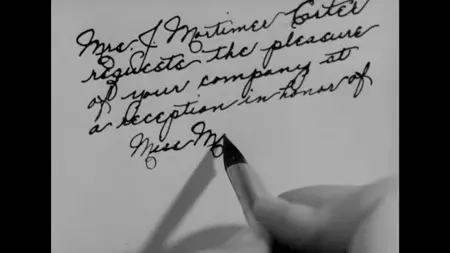 Mrs. J Mortimer Carter
requests the pleasure
of your company at
a reception in honor of
Miss M